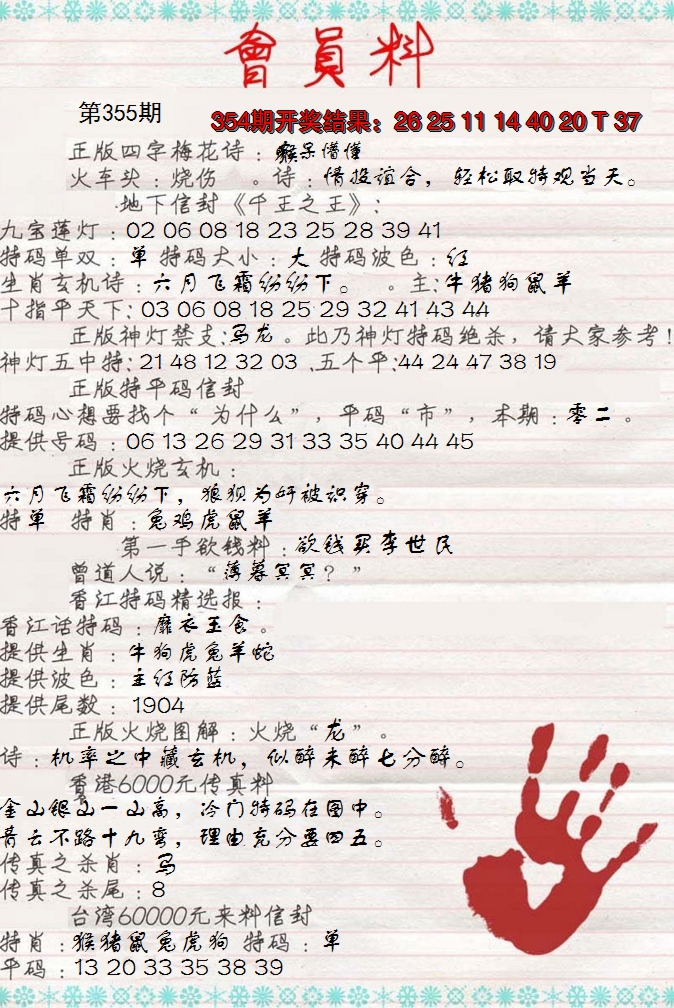 會員料
第355期
354期开奖结果：26 25 11 14 40 20 T 37
正版四字梅花诗：痴呆懵懂
火车头：烧伤 。诗：情投谊合，轻松取特观当天。
地下信封《千王之王》：
九宝莲灯：02 06 08 18 23 25 28 39 41
特码单双：单 特码大小：大 特码波色：红
生肖玄机诗：六月飞霜纷纷下。 。主：牛猪狗鼠羊
十指平天下：03 06 08 18 25 29 32 41 43 44
正版神灯禁支：马龙。此乃神灯特码绝杀，请大家参考！
神灯五中特：21 48 12 32 03 .五个平：44 24 47 38 19
正版特平码信封
特码心想要找个“为什么”，平码“市”，本期：零二。
提供号码：06 13 26 29 31 33 35 40 44 45
正版火烧玄机：
六月飞霜纷纷下，狼狈为奸被识穿。
特单 特肖：兔鸡虎鼠羊
第一手欲钱料：欲钱买李世民
曾道人说：“薄暮冥冥？”
香江特码精选报：
香江话特码：靡衣玉食。
提供生肖：牛狗虎兔羊蛇
提供波色：主红防蓝
提供尾数：1904
正版火烧图解：火烧“龙”。
诗：机率之中藏玄机，似醉未醉七分醉。
香港6000元传真料
金山银山一山高，冷门特码在图中。
青云不路十九弯，理由充分要四五。
传真之杀肖：马
传真之杀尾：8
台湾60000元来料信封
特肖：猴猪鼠兔虎狗 特码：单
平码：13 20 33 35 38 39